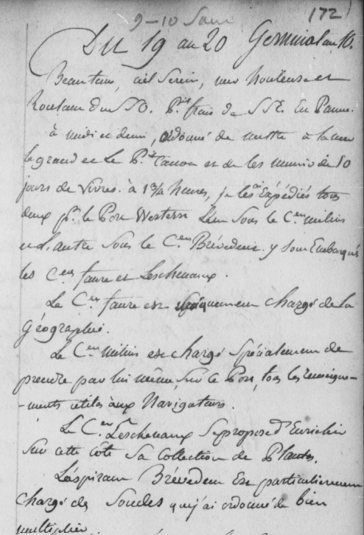 9-10 Sam
172
Du 19 au 20 Germinal an 10.
Beau tems, ciel serein, mer houleuse et
houlan du S.O. Ptit frais de S.E. En Panne.
à midi et demi, ordonné de mettre à la mer
le grand et le Pt Canot et de les munir de 10
jours de vivres. à 1 3/4 heures, je les ai Expédiés tous
deux pr. le Port Western l'un sous le Cen Milius
et l'autre sous le Cen Brévedent. y sont Embarqués
les Cens faure et Leschenaux.
Le Cen faure est spécialement chargé de la
Géographie.
Le Cen Milius est chargé Spécialement de
prendre par lui même sur le Port, tous les renseigne-
-ments utiles aux Navigateurs.
Le Cen Leschenaux Se propose d'Enrichir
Sur cette côte Sa Collection de Plantes.
L'aspirant Brévedent Est particulièrement
chargé des Soudes que j'ai ordonné de bien
multiplier